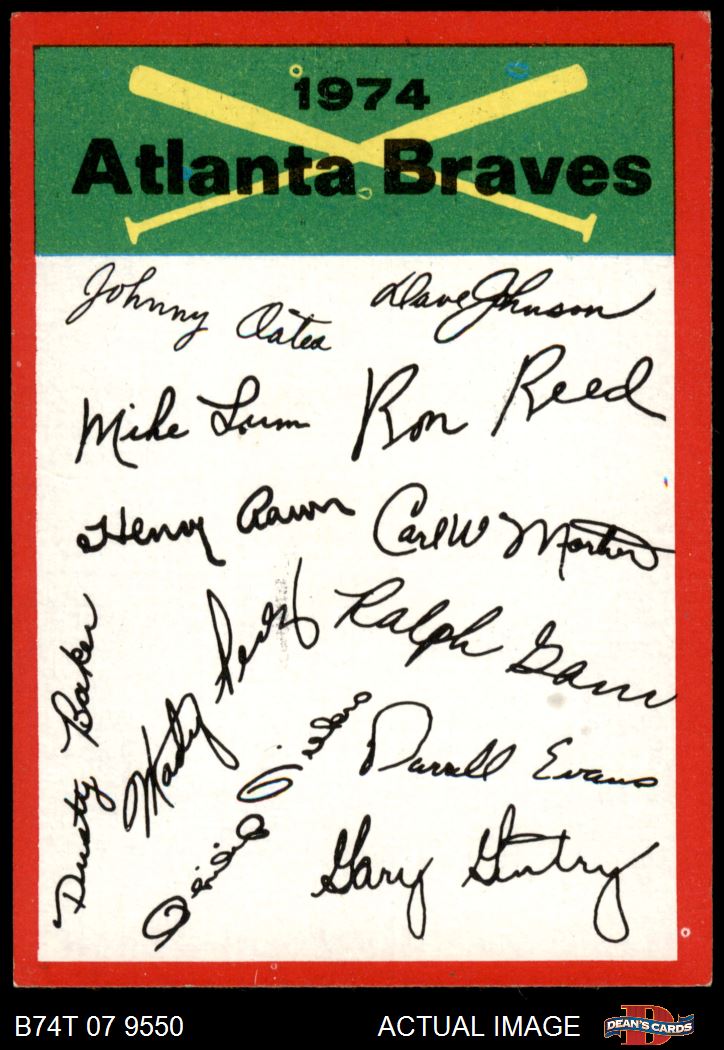 1974
Atlanta Braves
Johnny Oates
Dave Johnson
Mike Lum
Ron Reed
Henry Aaron
Carl W Morton
Ralph Garr
Marty Perez
Dusty Baker
Darrell Evans
Gary Gentry
B74T 07 9550
ACTUAL IMAGE
DEAN'S CARDS